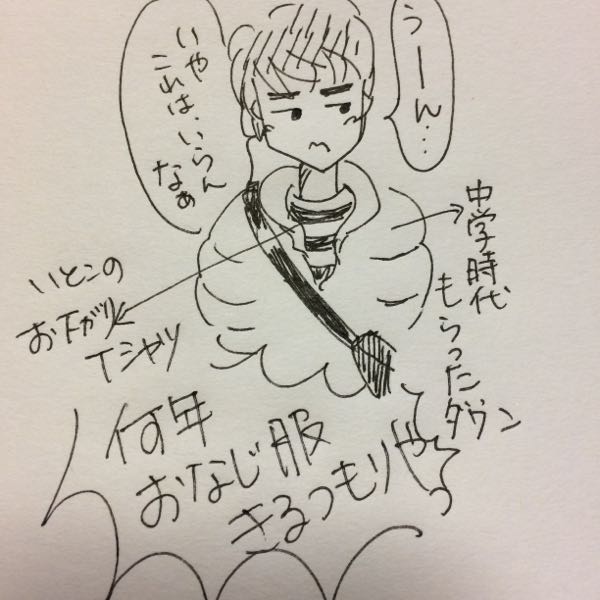 うーん…
いや
これは、いらん
なぁ
中学時代
もらったダウン
いとこの
お下がり
Tシャツ
何年
おなじ服
きるつもりやっ